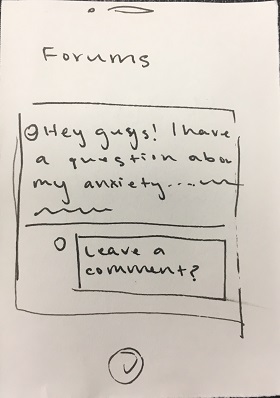 Forums
Hey guys! I have
a question abou
my anxiety....
Leave a
comment?